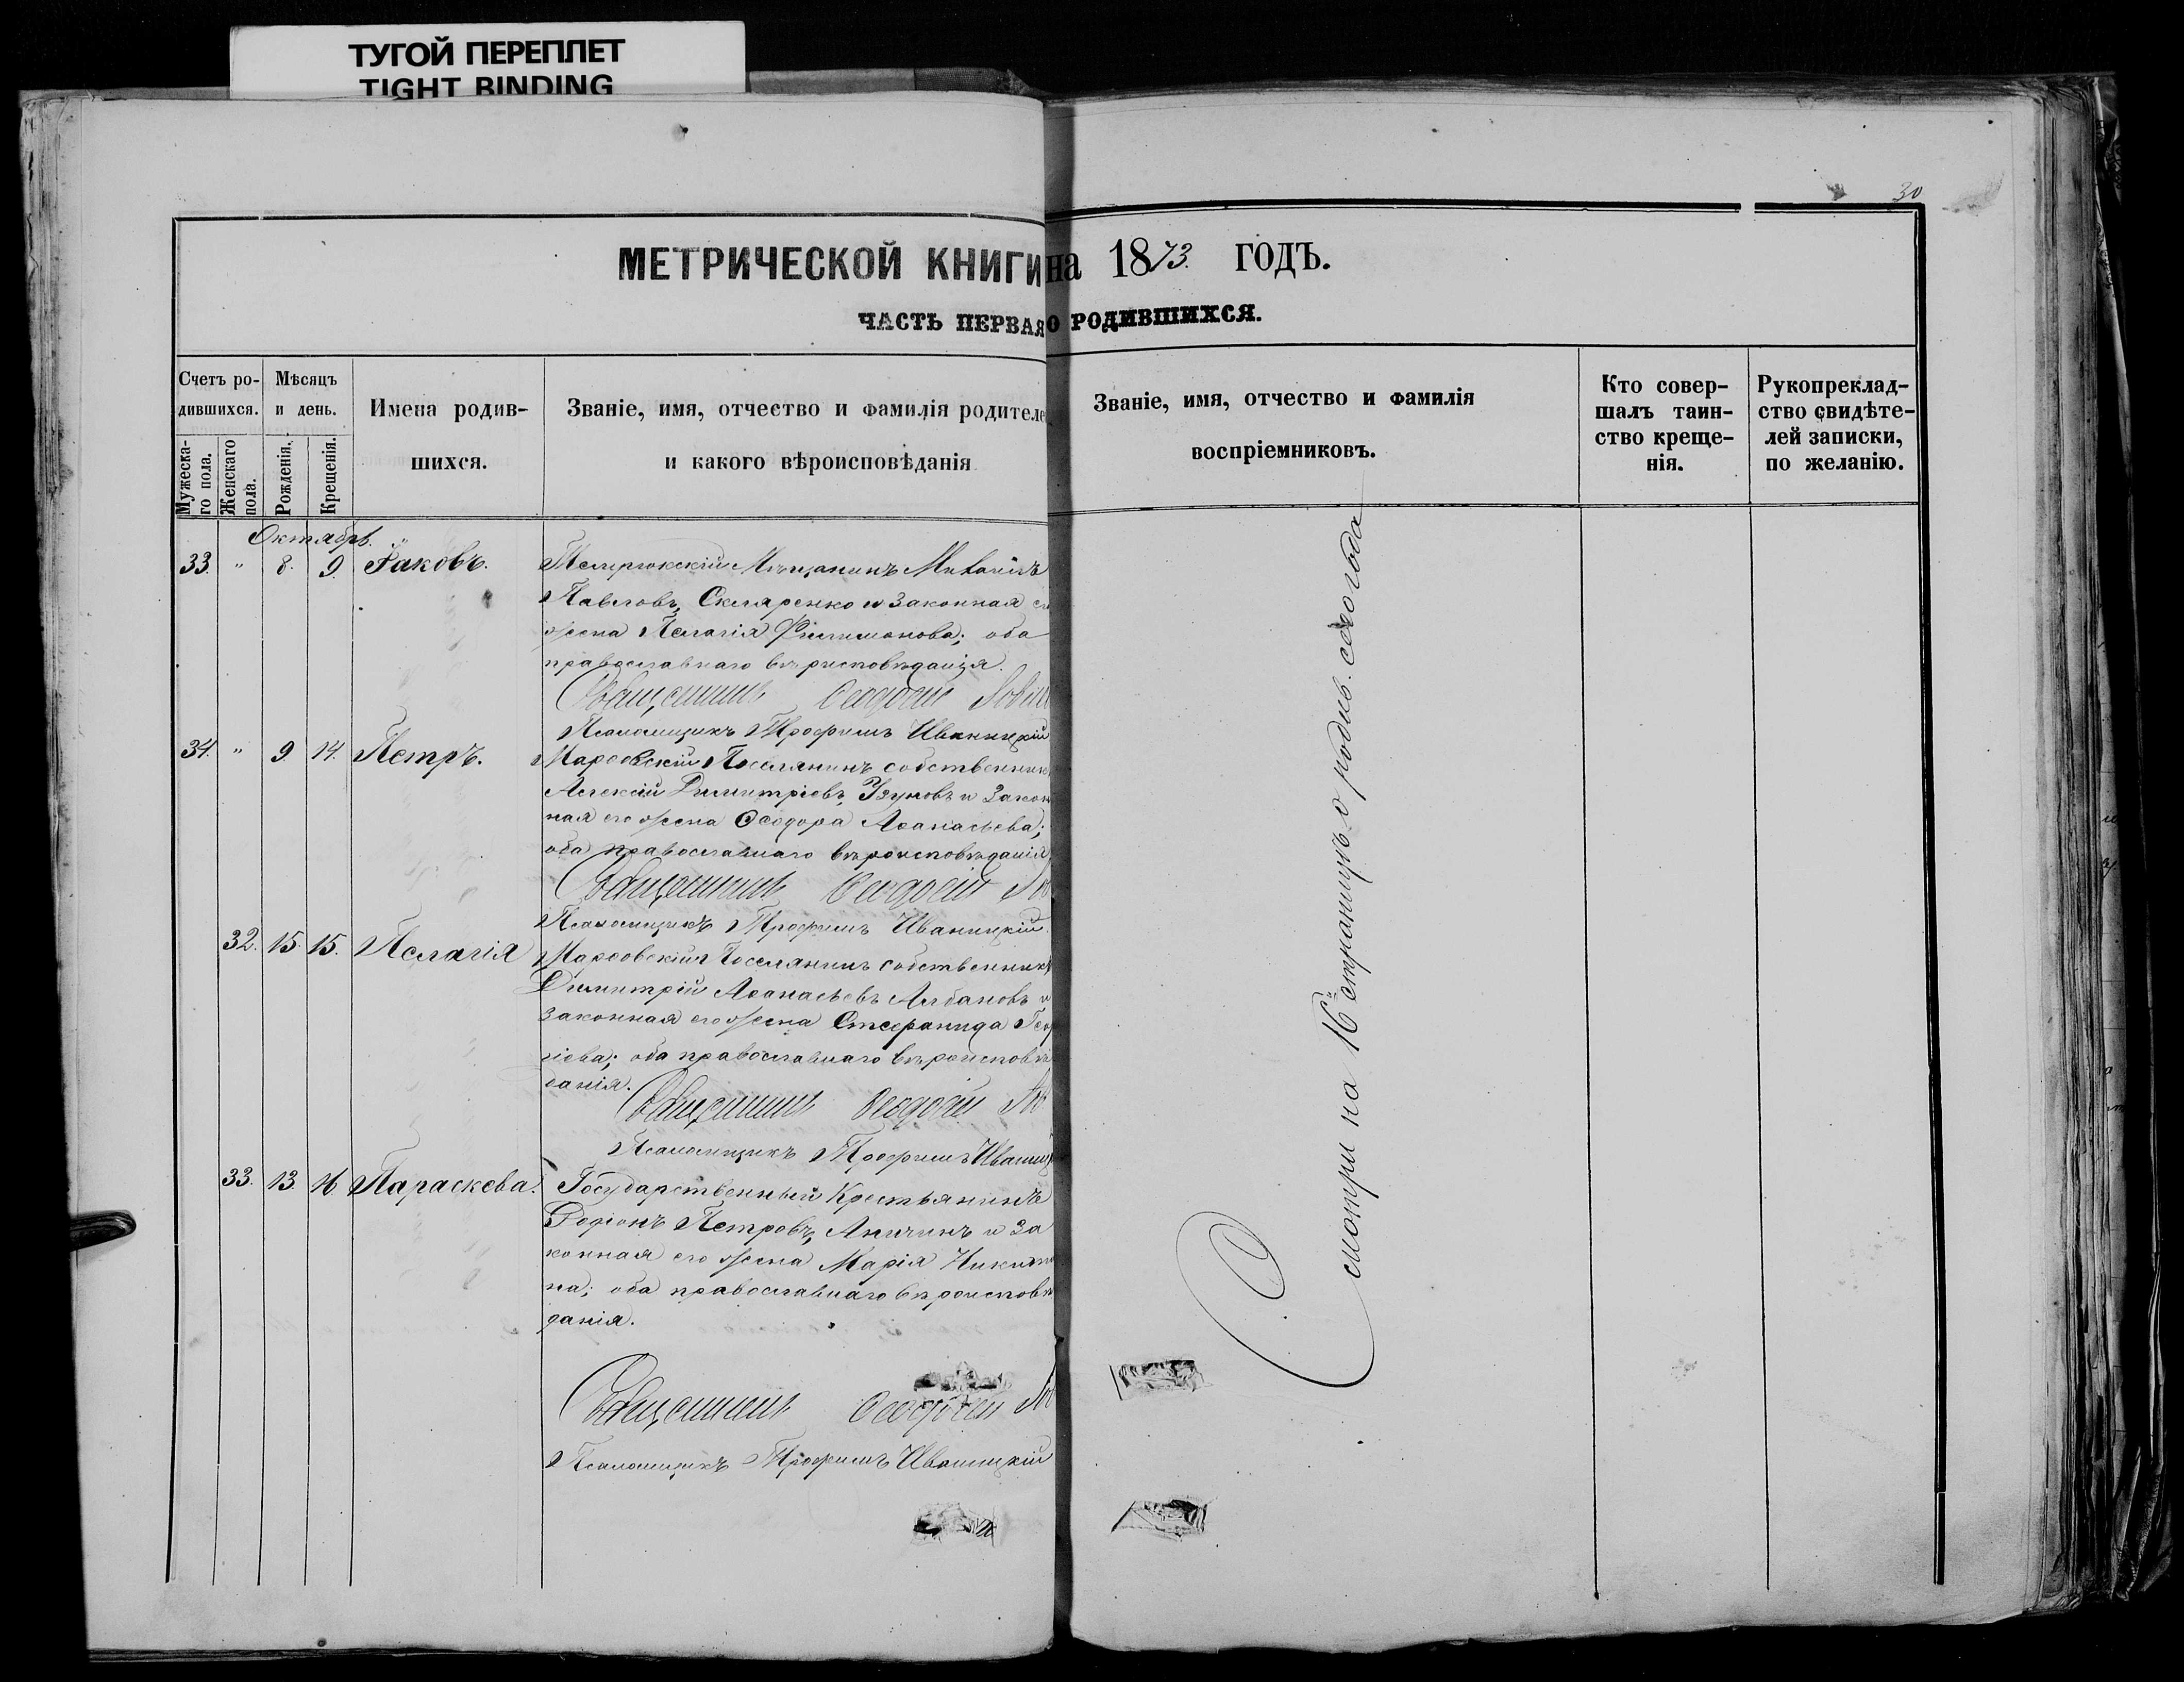 ТУГОЙ ПЕРЕПЛЕТ
TIGHT BINDING
30
МЕТРИЧЕСКОЙ КНИГИ на 1873. ГОДЪ.
ЧАСТЬ ПЕРВАЯ О РОДИВШИХСЯ.
Счетъ ро-
дившихся.
Мужеска-
го пола.
Женскаго
пола.
Мѣсяцъ
и день.
Рожденія.
Крещенія.
Имена родив-
шихся.
Званіе, имя, отчество и фамилія родителе
и какого вѣроисповѣданія
Званіе, имя, отчество и фамилія
воспріемниковъ.
Кто совер-
шалъ таин-
ство креще-
нія.
Рукопреклад-
ство свидѣте-
лей записки,
по желанію.
Октябрь.
33. " 8. 9. Іаковъ. Темрюкскій Мѣщанинъ Михаилъ
Павловъ Скляренко и законная
жена Пелагія Филимонова; оба
православнаго вѣрисповѣданія.
Священникъ Ѳеодосій
Псаломщикъ Трофимъ Иваницкій
34. " 9. 14. Петръ. Марѳовскій Поселянинъ собственникъ
Алексій Димитріевъ Узуновъ и закон
ная его жена Ѳеодора Аѳанасьева;
оба православнаго вѣроисповѣданія
Священникъ Ѳеодосій
Псаломщикъ Трофимъ Иваницкій.
32. 15. 15. Пелагія Марѳовскій Поселянинъ собственникъ
Димитрій Аѳанасьевъ Албановъ и
законная его жена Стефанида Геор
гіева; оба православнаго вѣроисповѣ
данія.
Священникъ Ѳеодосій
Псаломщикъ Трофимъ Иваниц
33. 13. 16. Параскева. Государственный Крестьянинъ
Родіонъ Петровъ Аничинъ и за
конная его жена Марія Никити
на; оба православнаго вѣроисповѣ
данія.
Священникъ Ѳеодосій
Псаломщикъ Трофимъ Иваницкій
Смотри на 16й страницѣ о родив. сего года